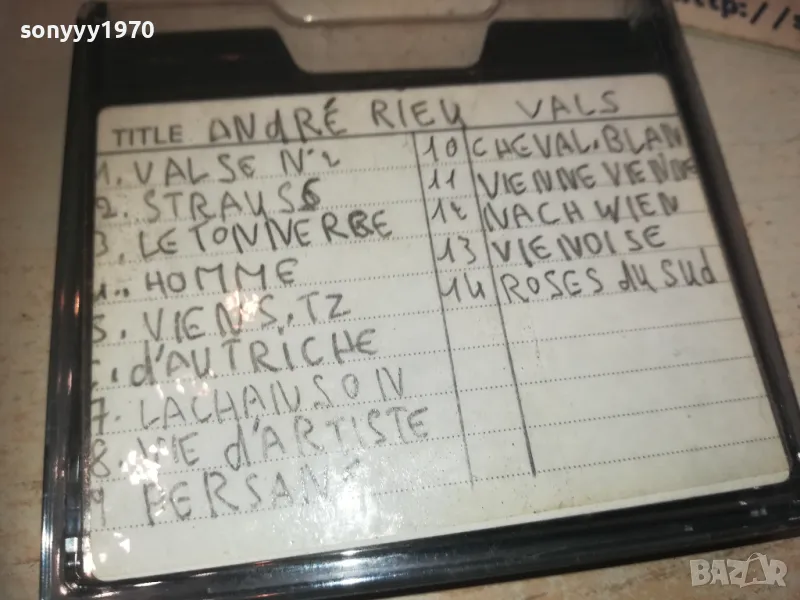 sonyyy1970
http://
TITLE ANDRÉ RIEU VALS
1. VALSE N°2
2. STRAUSS
3. LE TONNERBE
4.. HOMME
5. VIENS, TZ
d'AUTRICHE
7. LACHANSON
8 VIE d'ARTISTE
9 PERSANE
10 CHEVAL.BLAN
11 VIENNE VIENNE
12 NACH WIEN
13 VIENOISE
14 ROSES du Sud
BAZAR